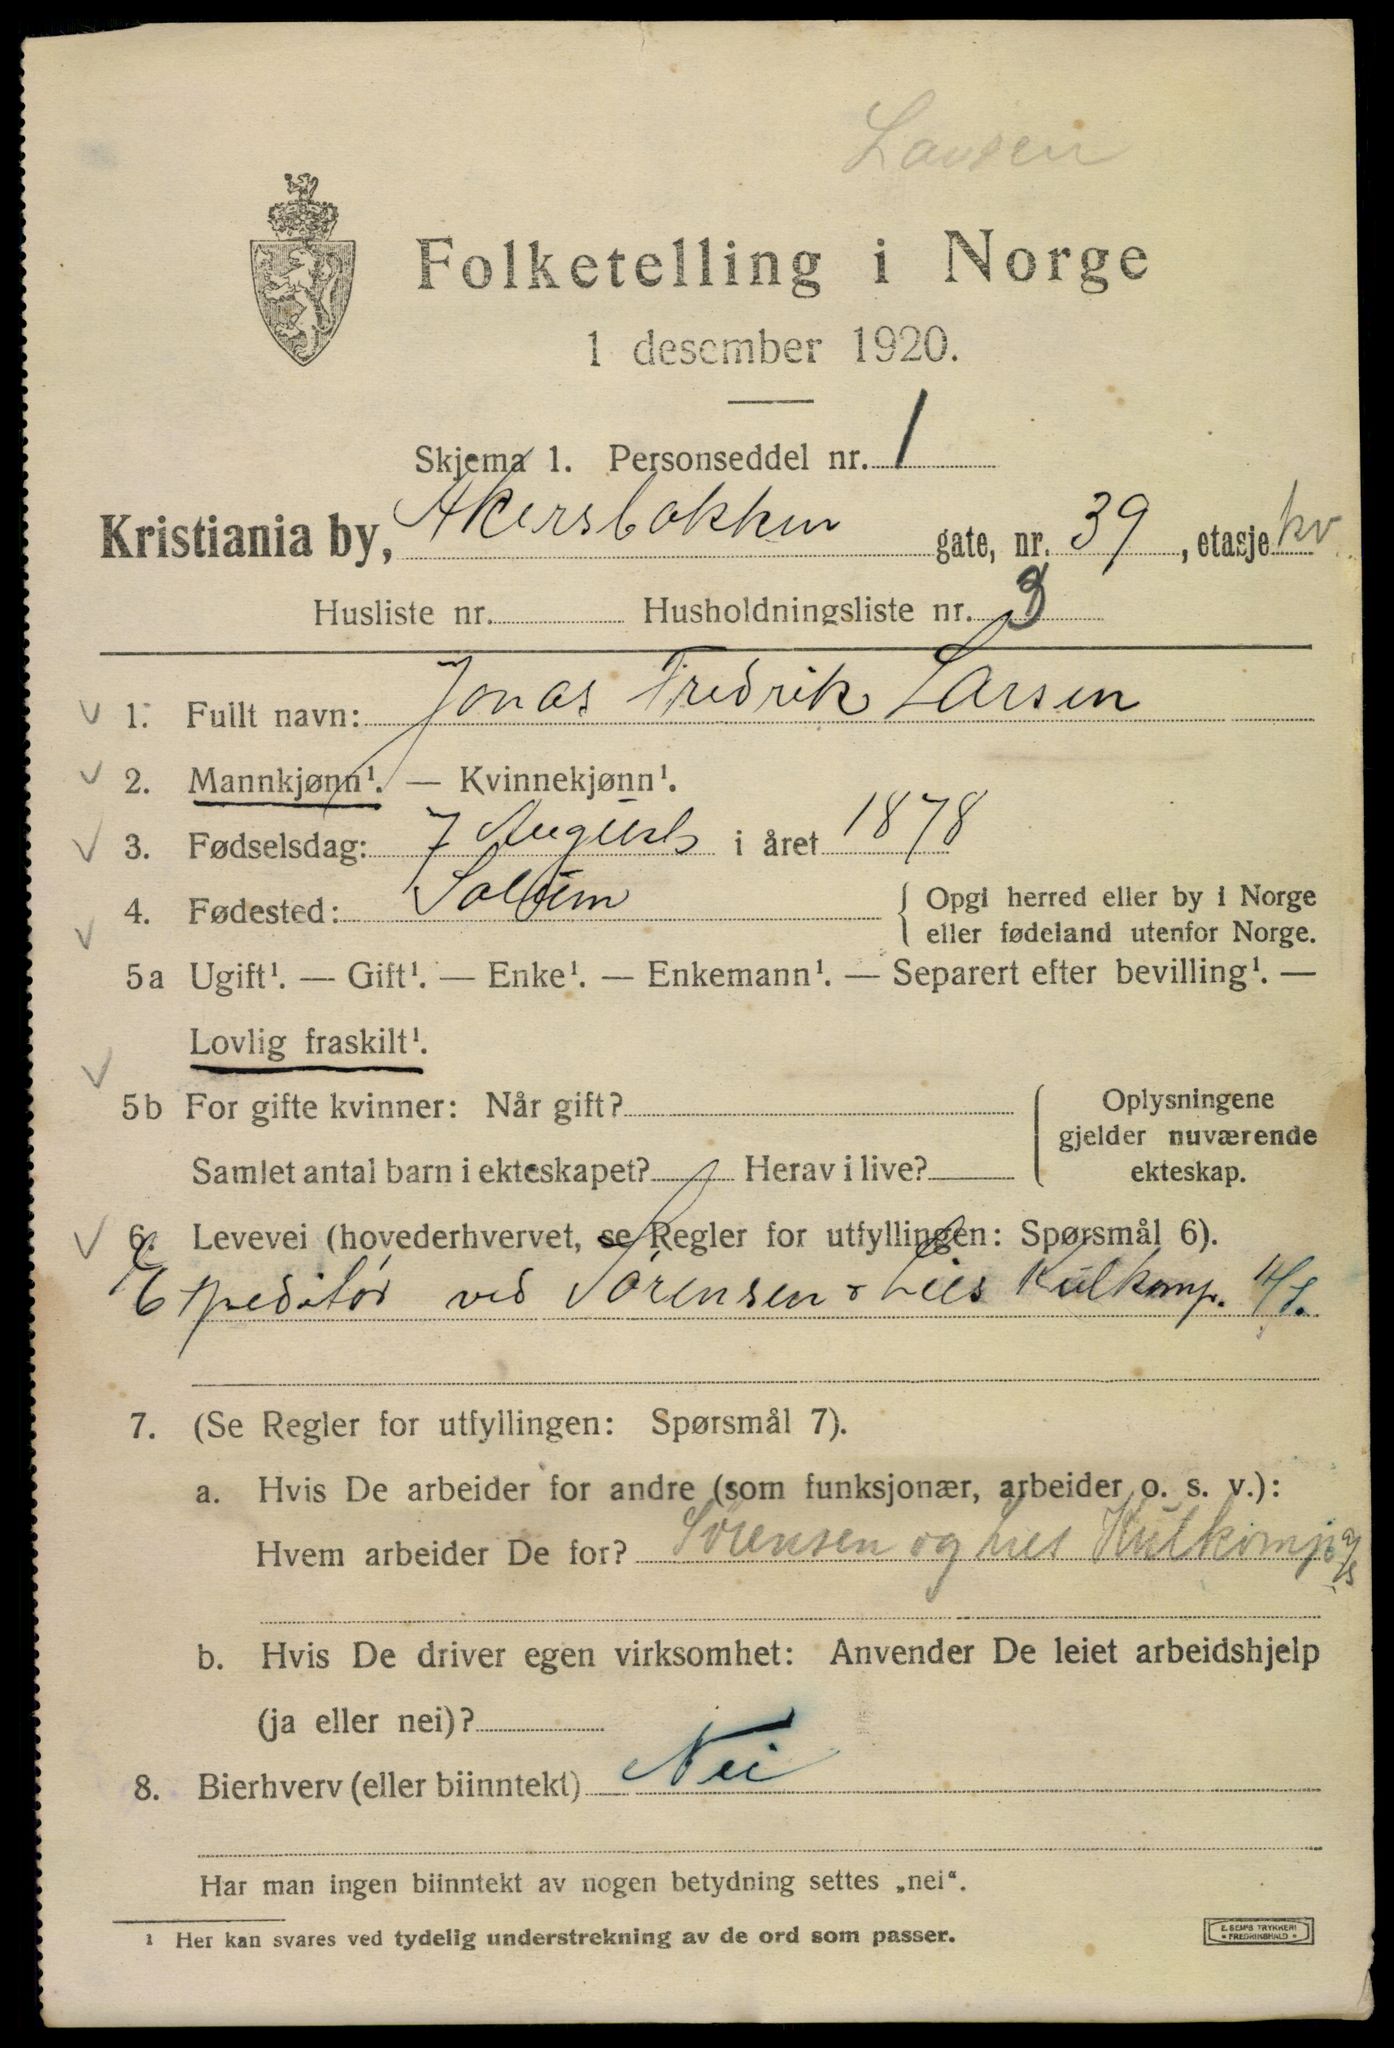 Larsen
Folketelling i Norge
1 desember 1920.
Skjema 1. Personseddel nr. 1
Kristiania by, Akersbakken gate, nr. 39, etasje kv
Husliste nr. Husholdningsliste nr. 3
1. Fullt navn: Jonas Fredrik Larsen
2. Mannkjønn¹. — Kvinnekjønn¹.
3. Fødselsdag: 7 August i året 1878
4. Fødested: Solum { Opgi herred eller by i Norge
eller fødeland utenfor Norge.
5a Ugift¹. — Gift¹. — Enke¹. — Enkemann¹. — Separert efter bevilling¹. —
Lovlig fraskilt¹.
5b For gifte kvinner: Når gift? { Oplysningene
gjelder nuværende
Samlet antal barn i ekteskapet? Herav i live? ekteskap.
6. Levevei (hovederhvervet, se Regler for utfyllingen: Spørsmål 6).
Expeditør ved Sørensen & Lies Kulkomp. A/S.
7. (Se Regler for utfyllingen: Spørsmål 7).
a. Hvis De arbeider for andre (som funksjonær, arbeider o. s. v.):
Hvem arbeider De for? Sørensen og Lies Kulkomp a/s
b. Hvis De driver egen virksomhet: Anvender De leiet arbeidshjelp
(ja eller nei)?
8. Bierhverv (eller biinntekt) Nei
Har man ingen biinntekt av nogen betydning settes „nei“.
¹ Her kan svares ved tydelig understrekning av de ord som passer.
E. SEM'S TRYKKERI
* FREDRIKSHALD *